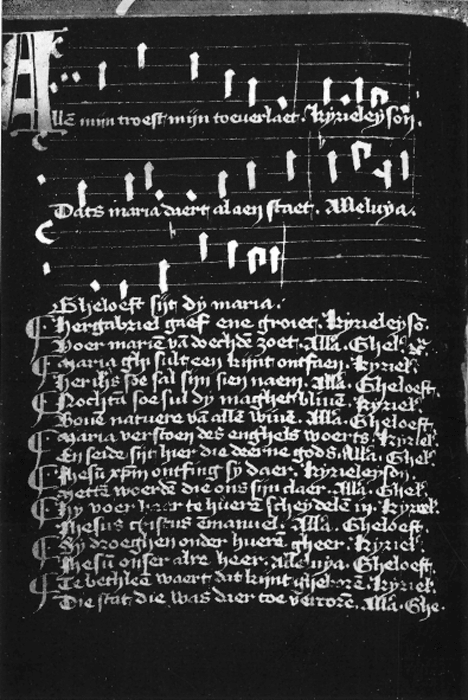 Allē mijn troest mijn toeverlaet. Kyrieleyson.
Dats maria daert al aen staet. Alleluya.
Gheloeft sijt dy maria.
Hergabriel gaef ene groiet. Kyrieleysō.
Voer mariē vā doechdē zoet. Allā. Ghel.
Maria ghi sult een kijnt ontfaen. Kyriel.
herihs soe sal sijn sien naem. Allā. Gheloeft.
Nochtā soe sul dy maghet blivē. Kyriel.
Bovē natuere vā allē wivē. Allā. Gheloeft.
Maria verstoen des enghels woerts. Kyriel.
En seide sijt hier die deerne gods. Allā. Ghel.
Jhesū xp̄m ontfing sy daer. Kyrieleyson.
mettē woerdē die ons sijn claer. Allā. Ghel.
Hy voer te huere scheydelē in. Kyriel.
Jhesus cristus ēmanuel. Allā. Gheloeft.
Sy droeghen onder huere gheer. Kyriel.
Jhesū onser alre heer. Alleluya. Gheloeft.
Te bethleē waert dat kijnt gheborē. Kyriel.
Die stat die was dier toe vercorē. Allā. Ghe.